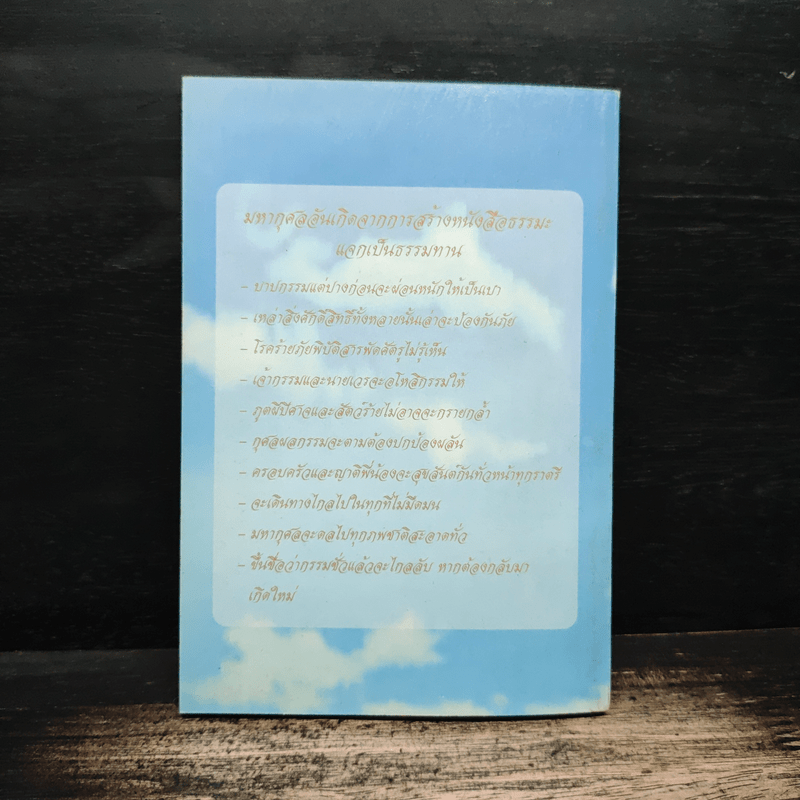 มหากุศลอันเกิดจากการสร้างหนังสือธรรมะ
แจกเป็นธรรมทาน
- บาปกรรมแต่ปางก่อนจะผ่อนหนักให้เป็นเบา
- เหล่าสิ่งศักดิ์สิทธิ์ทั้งหลายนั้นเล่าจะป้องกันภัย
- โรคร้ายภัยพิบัติสารพัดศัตรูไม่รู้เห็น
- เจ้ากรรมและนายเวรจะอโหสิกรรมให้
- ภูตผีปีศาจและสัตว์ร้ายไม่อาจจะกรายกล้ำ
- กุศลผลกรรมจะตามต้องปกป้องผลัน
- ครอบครัวและญาติพี่น้องจะสุขสันต์กันทั่วหน้าทุกราตรี
- จะเดินทางไกลไปในทุกที่ไม่มืดมน
- มหากุศลจะดลไปทุกภพชาติสะอาดทั่ว
- ขึ้นชื่อว่ากรรมชั่วแล้วจะไกลลับ หากต้องกลับมา
เกิดใหม่